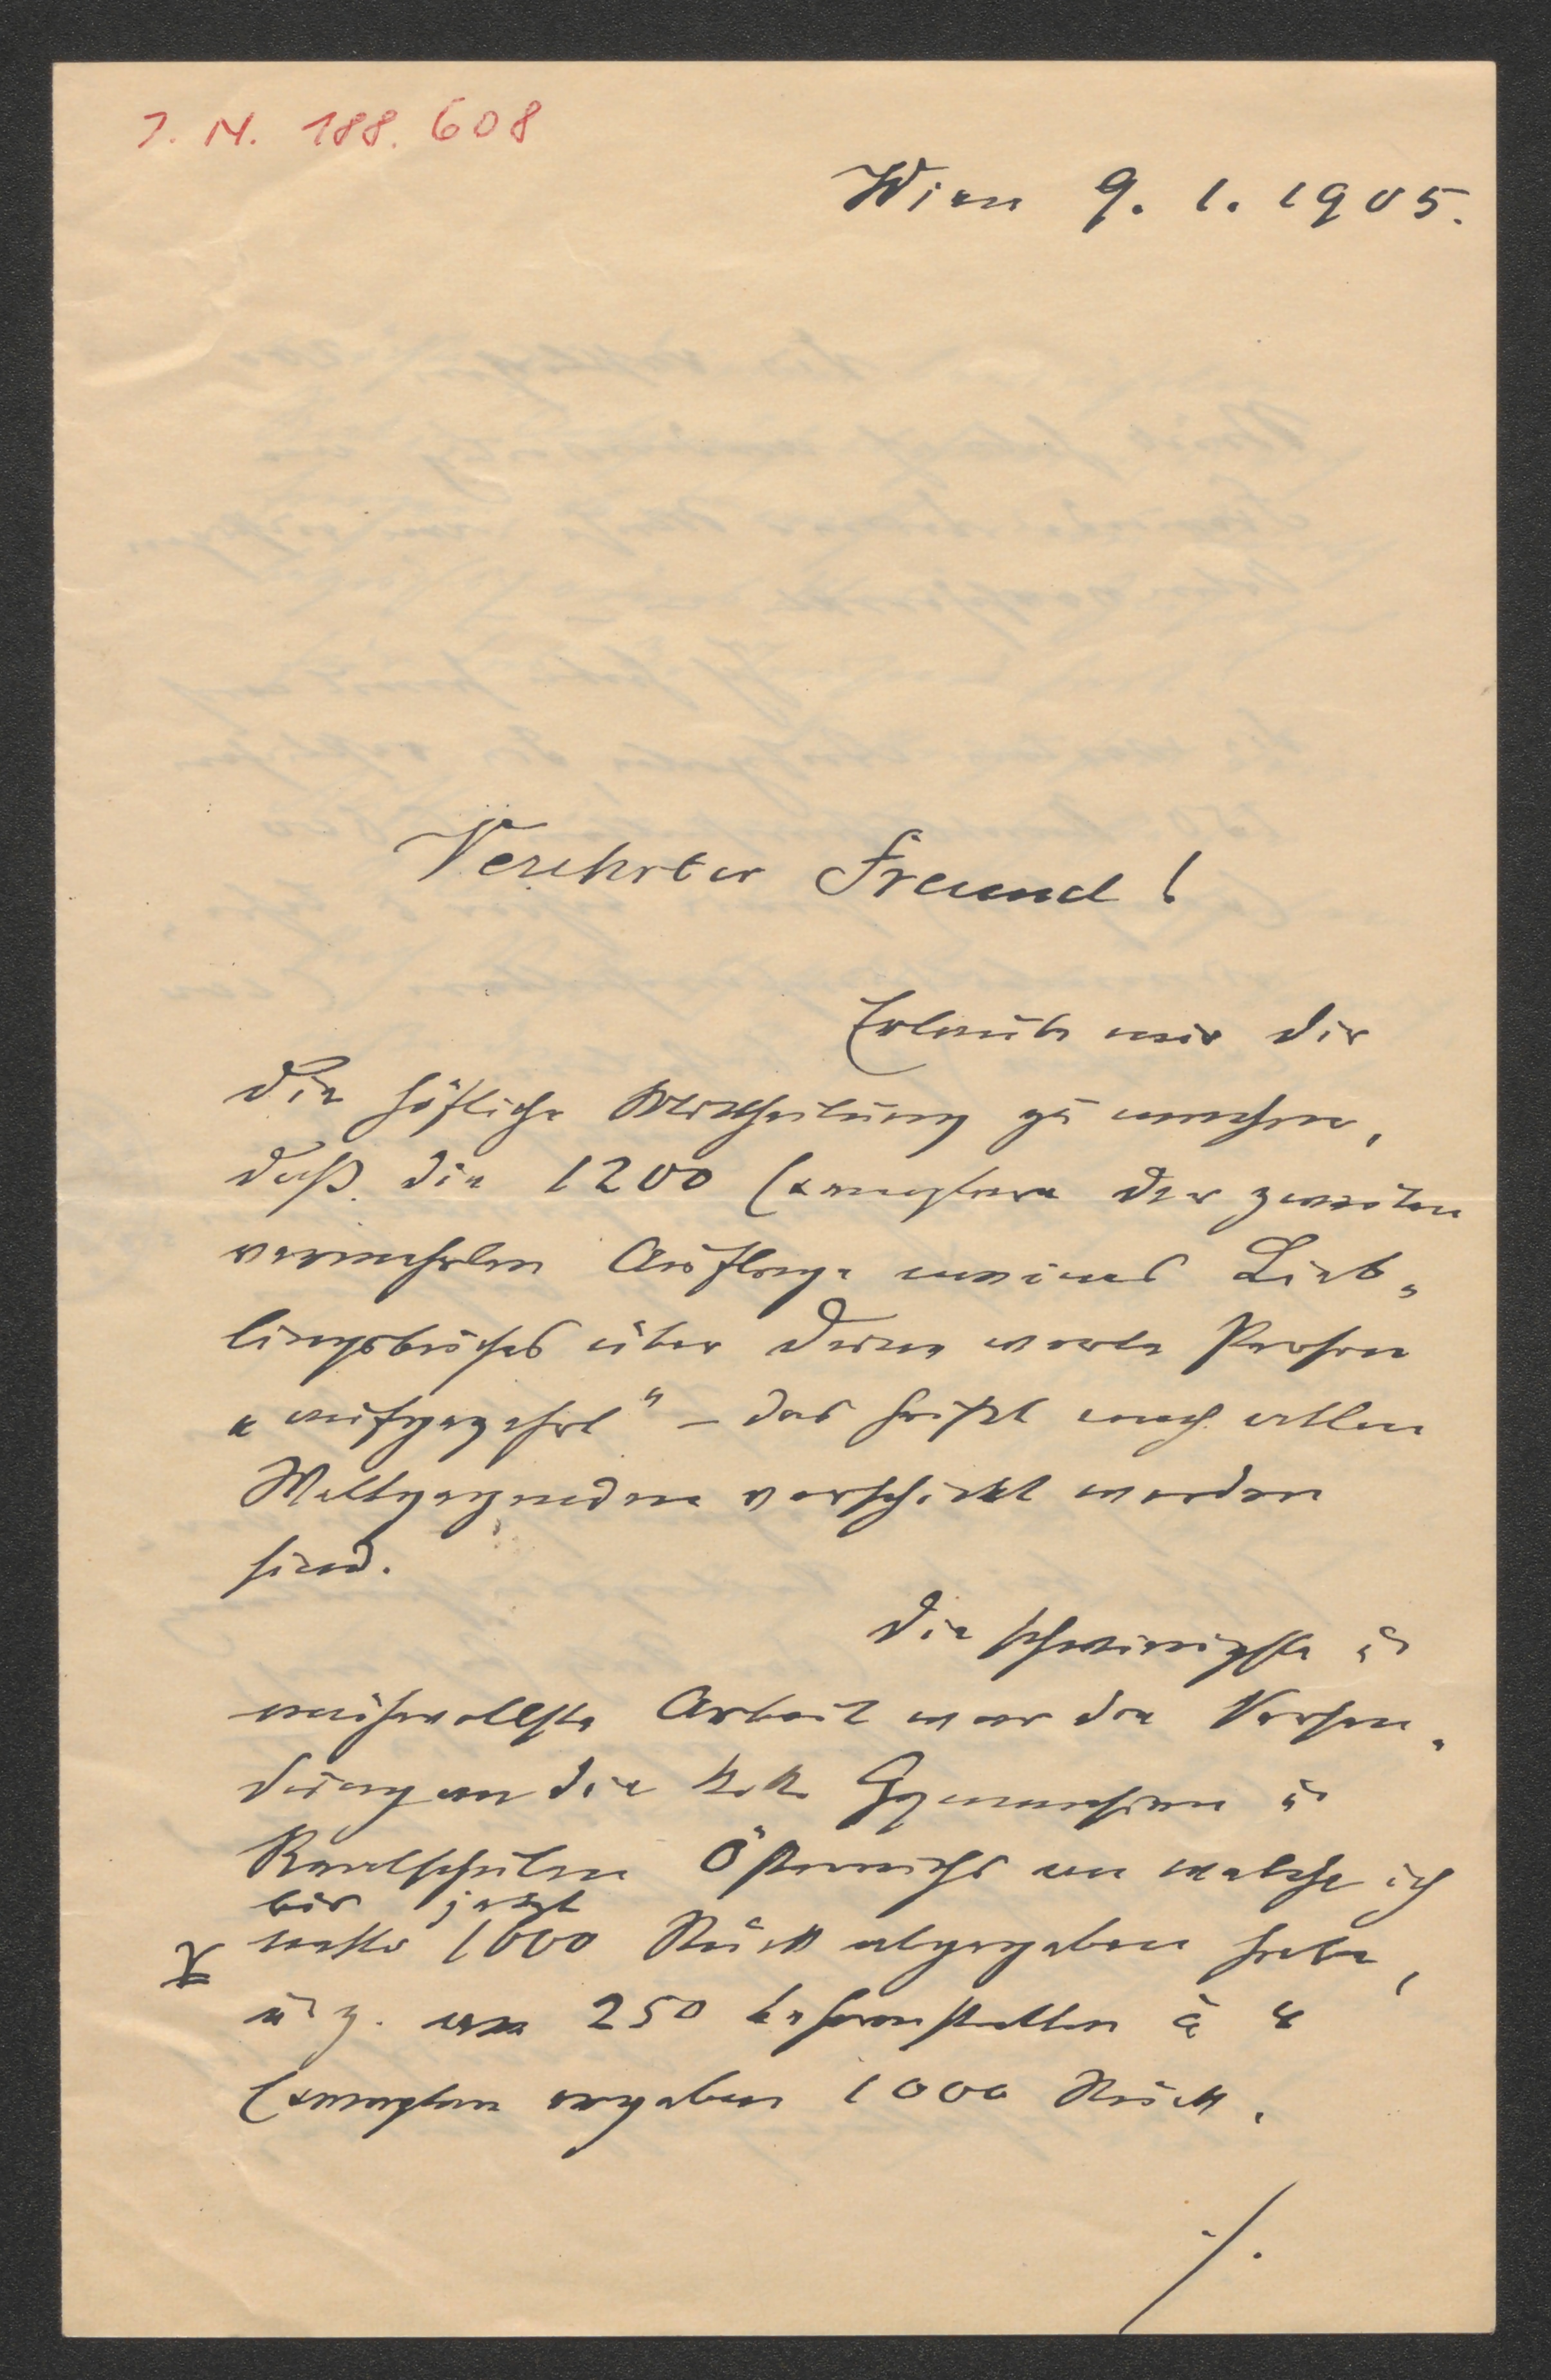 J. N. 188.608
Wien 9. 1. 1905.
Verehrter Freund!
Erlaube mir Dir
die höfliche Mittheilung zu machen,
daß die 1200 Exemplare der zweiten
vermehrten Auflage meines Lieb„
lingsbuches über Deine werte Person
„aufgezehrt" – das heißt nach allen
Weltgegenden verschickt worden
sind.
Die schwierigste u
mühevollste Arbeit war die Versen„
dung an die k. k. Gymnasien u
Realschulen Österreichs an welche ich
bis jetzt
netto 1000 Stück abgegeben habe,
u z. an 250 Lehranstalten à 4
Exemplare ergaben 1000 Stück.
./.